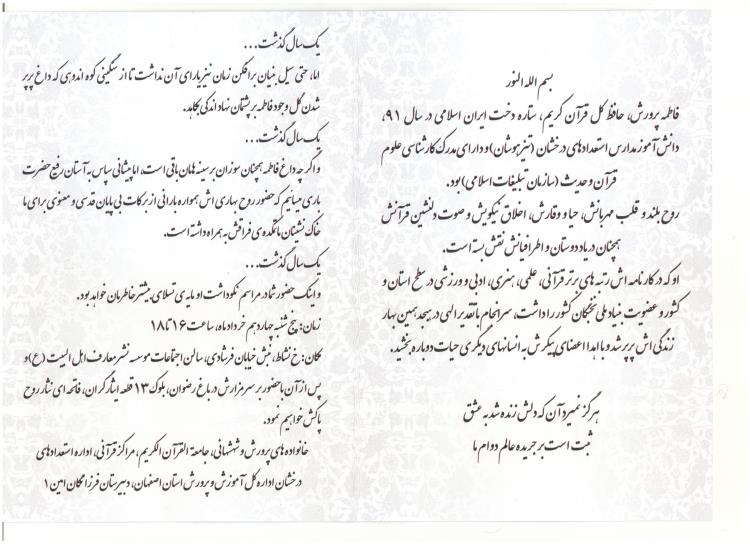 بسم الله النور
فاطمه پرورش، حافظ کل قرآن کریم، ستاره دخت ایران اسلامی در سال ۹۱،
دانش آموز مدارس استعدادهای درخشان (تیزهوشان) و دارای مدرک کارشناسی علوم
قرآن و حدیث (سازمان تبلیغات اسلامی) بود.
روح بلند و قلب مهربانش، حیا و وقارش، اخلاق نیکویش و صوت دلنشین قرآنش
همچنان در یاد دوستان و اطرافیانش نقش بسته است.
او که در کارنامه اش رتبه های برتر قرآنی، علمی، هنری، ادبی و ورزشی در سطح استان و
کشور و عضویت بنیاد ملی نخبگان کشور را داشت، سرانجام با تقدیر الهی در هجدهمین بهار
زندگی اش پرپر شد و با اهدا اعضای پیکرش به انسانهای دیگری حیات دوباره بخشید.
هرگز نمیرد آن که دلش زنده شد به عشق
ثبت است بر جریده عالم دوام ما
یک سال گذشت...
اما، حتی سیل بنیان برافکن زمان نیز یارای آن نداشت تا از سنگینی کوه اندوهی که داغ پرپر
شدن گل وجود فاطمه بر پشتمان نهاد اندکی بکاهد.
یک سال گذشت...
و اگر چه داغ فاطمه همچنان سوزان بر سینه هامان باقی است، اما پیشانی سپاس به آستان رفیع حضرت
باری میسائیم که حضور روح بهاری اش همواره بارانی از برکات بی پایان قدسی و معنوی برای ما
خاک نشینان ماتمکده ی فراقش به همراه داشته است.
یک سال گذشت...
و اینک حضور شما در مراسم نکوداشت او مایه ی تسلای بیشتر خاطرمان خواهد بود.
زمان: پنج شنبه چهاردهم خرداد ماه، ساعت ۱۶ تا ۱۸
مکان: خ نشاط، نبش خیابان فرشادی، سالن اجتماعات موسسه نشر معارف اهل البیت (ع) و
پس از آن با حضور بر سر مزارش در باغ رضوان، بلوک ۱۳ قطعه ایثارگران، فاتحه ای نثار روح
پاکش خواهیم نمود.
خانواده های پرورش و شهشهانی، جامعة القرآن الکریم، مراکز قرآنی، اداره استعدادهای
درخشان اداره کل آموزش و پرورش استان اصفهان، دبیرستان فرزانگان امین ۱